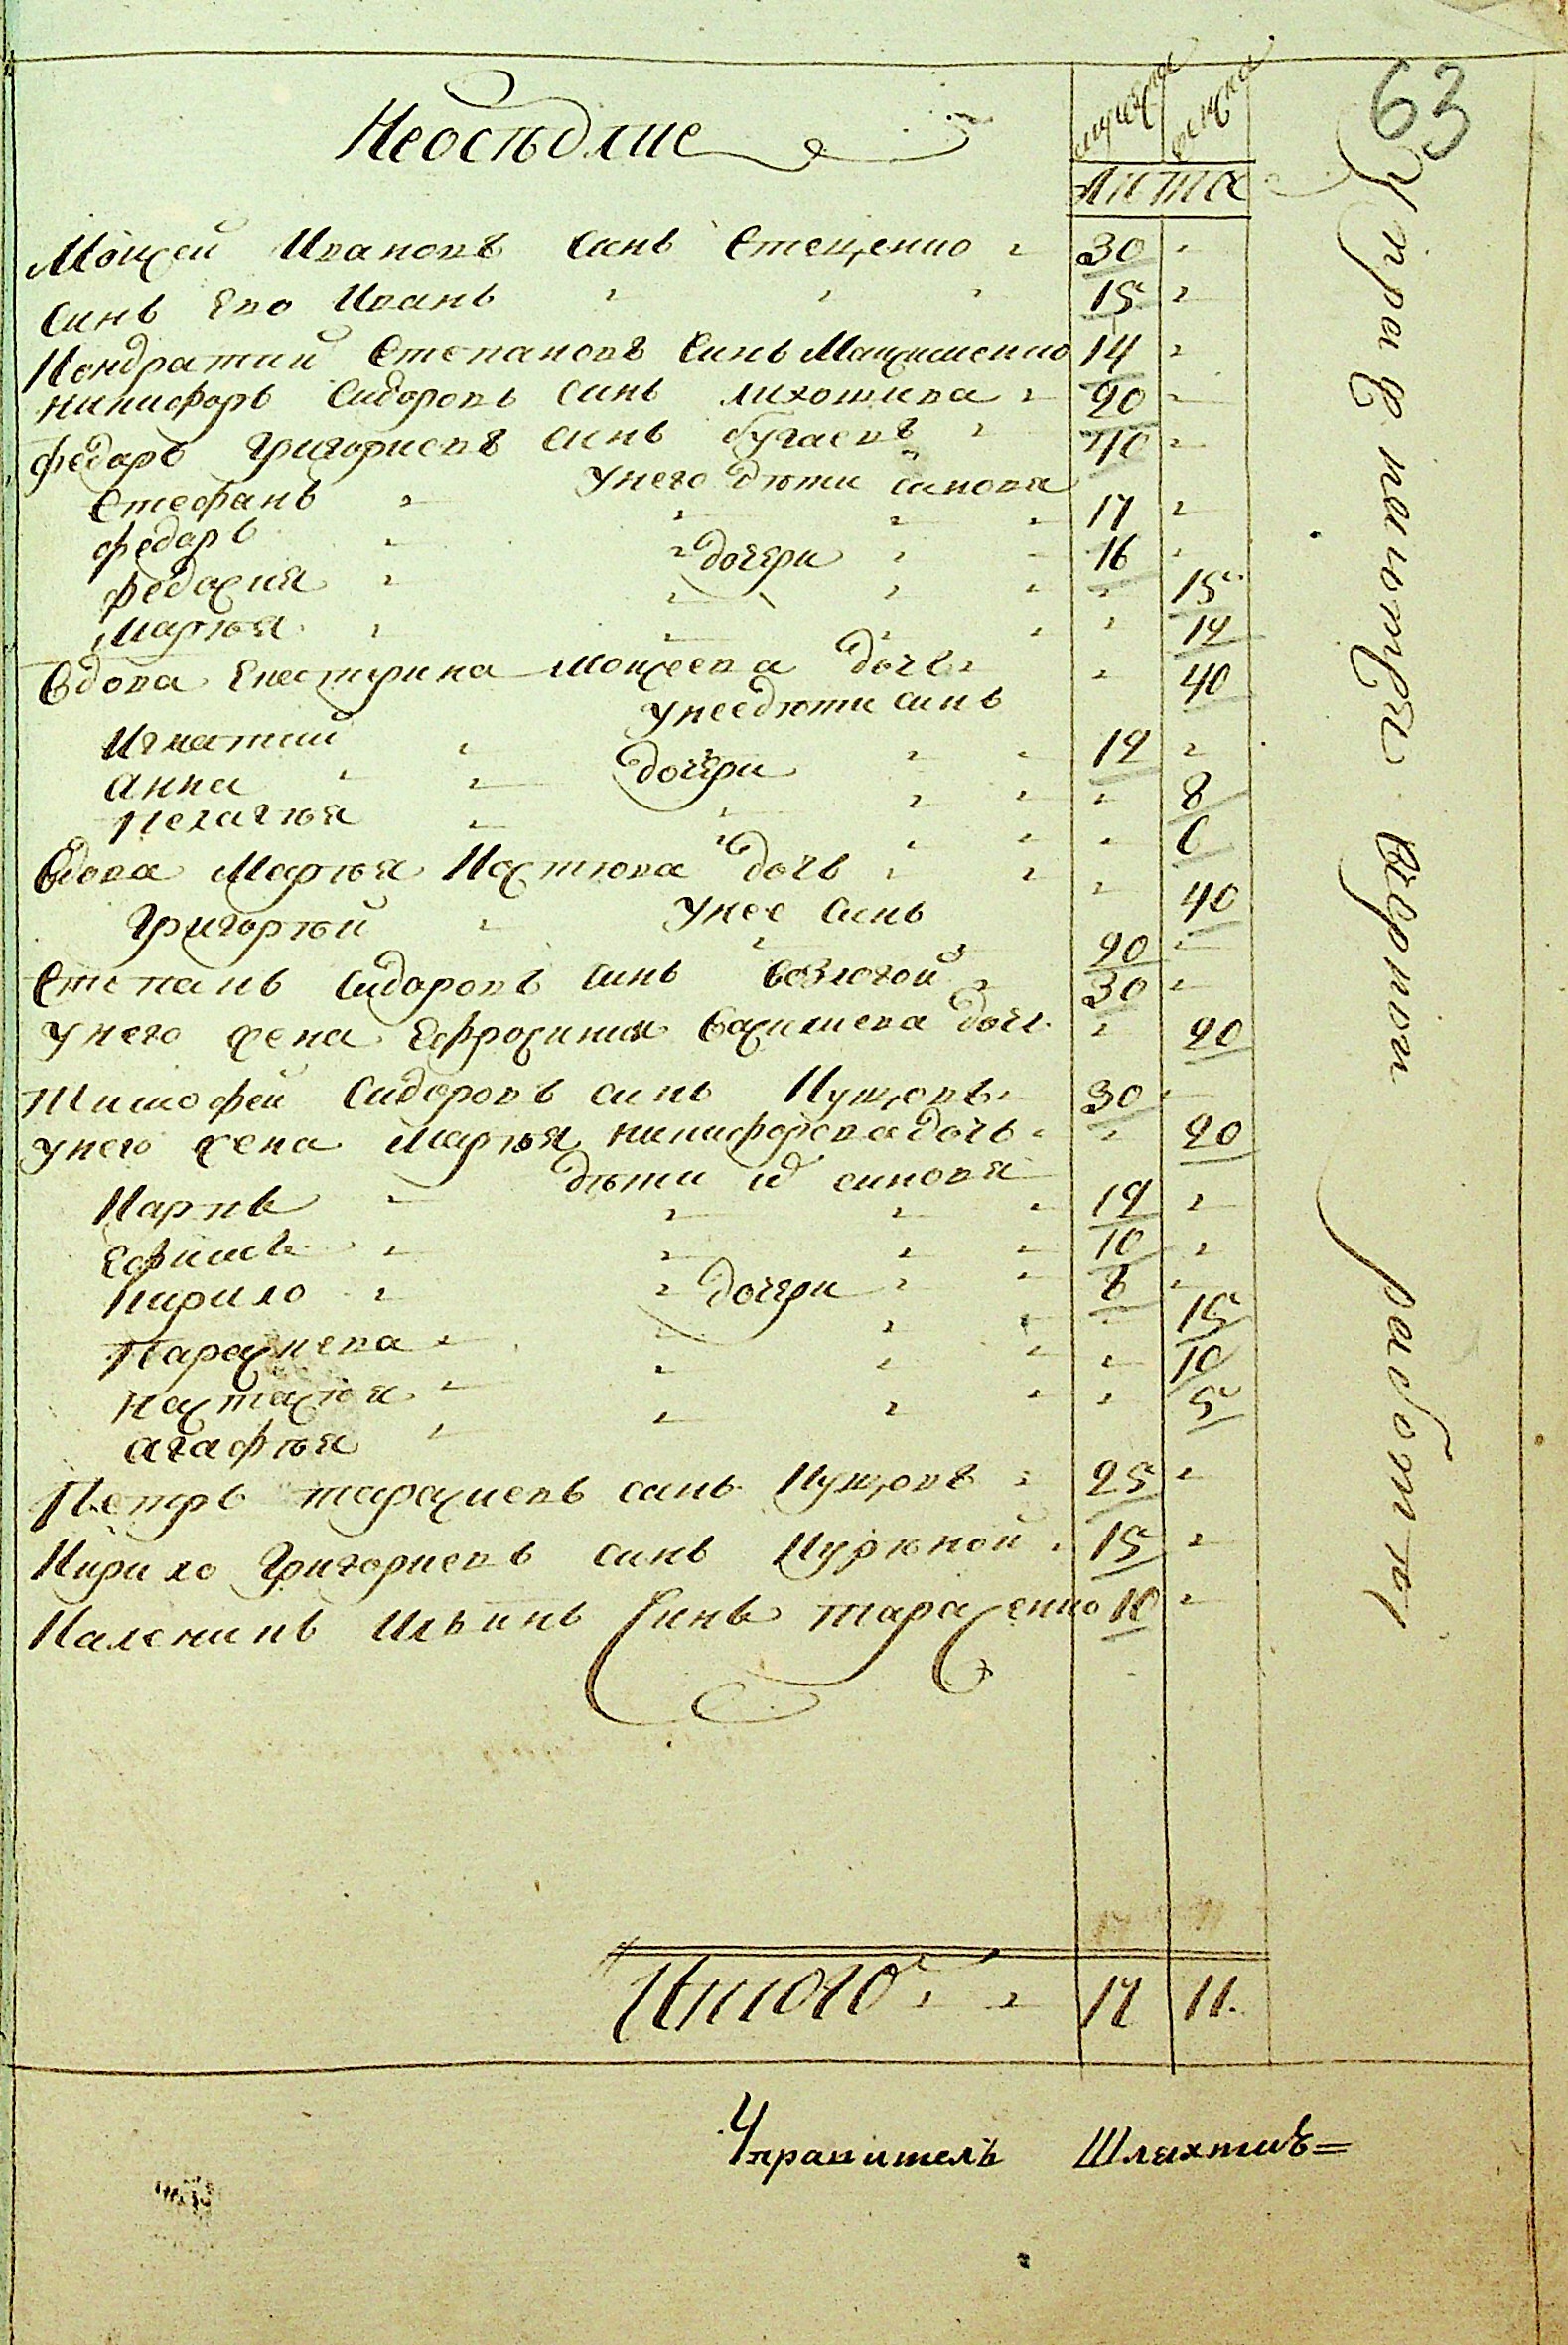 63
Неоседлие
мужска женска
лѣта
Моисей Ивановъ синъ Стеценко 30
Синъ Его Иванъ 15
Кондратий Степановъ Синъ Максименко 14
никифоръ Сидоровъ синъ лихошива 20
федоръ Григориевъ синъ бугаевъ 40
У него дѣти синовя
Стефанъ 17
федоръ 16
дочери
федосия 15
Марѣя 12
Вдова Екатирина Моисеева дочъ 40
У нее дѣти синъ
Игнатий 12
дочери
Анна 8
Пелагѣя 6
Вдова Марѣя Костюва дочъ 40
У нее синъ
Григорѣй 20
Степанъ Сидоровъ синъ 30
У него жена Ефросиния Василиева дочъ 20
Тимофей Сидоровъ синъ Куцовъ 30
У него жена Марѣя никифорова дочъ 20
дѣти их синовя
Карпъ 12
Ефимъ 10
Кирило 8
дочери
Параскева 15
настасѣя 10
агафѣя 5
Петръ тарасиевъ синъ Куцовъ 25
Кирило Григориевъ синъ Куреной 15
Каленикъ Ильинъ Синъ тарасенко 10
Итого 17 11
Управитель Шляхтичъ
работы